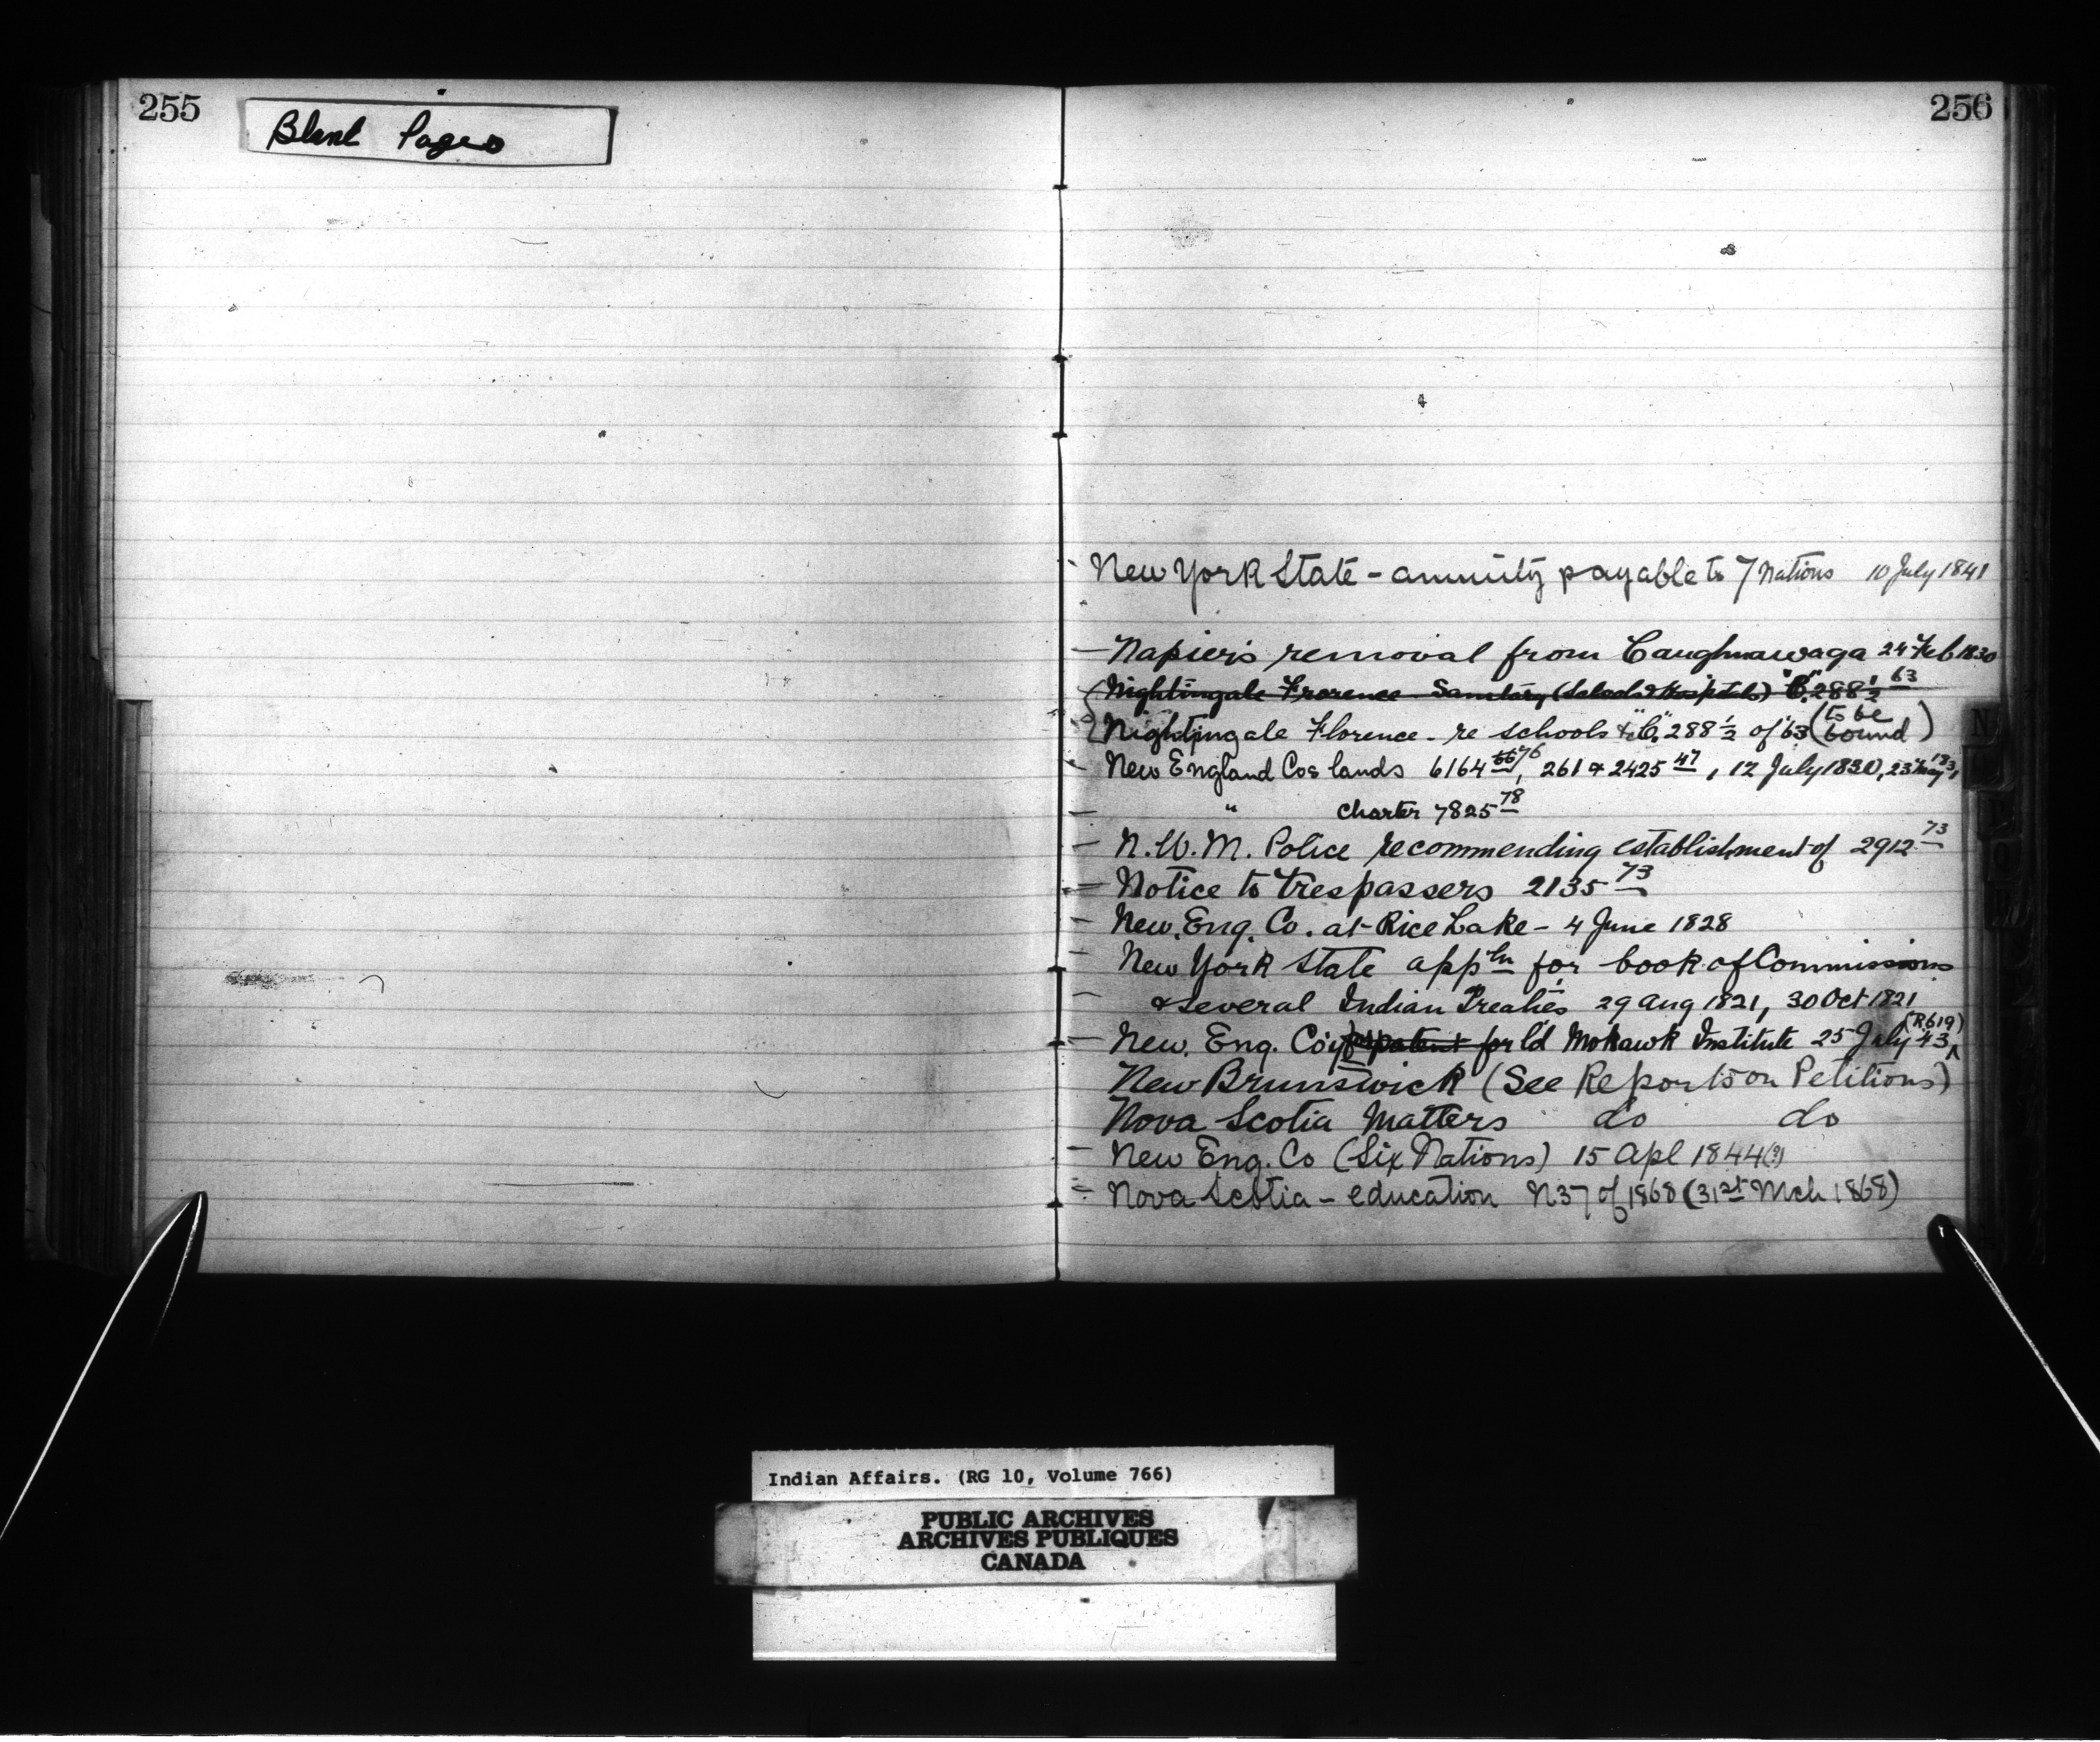 255
Blank Pages
256
New York State - annuity payable to 7 Nations 10 July 1841
- Napier's removal from Caughnawaga 24 Feb 1830
Nightingale Florence Sanitary (Schools & Hospitals) "C" 288 1/2 63
Nightingale Florence - re schools &c "C" 288 1/2 of '63 (to be bound)
- New England Cos lands 6164 66 76, 261 & 2425 47, 12 July 1830, 23 May 1831
- " Charter 7825 78
- N.W.M. Police recommending establishment of 2912 73
- Notice to trespassers 2135 73
- New. Eng. Co. at Rice Lake - 4 June 1828
- New York State app'ln for book of Commissions
- & several Indian Treaties 29 Aug 1821, 30 Oct 1821
- New. Eng. Co'y patent for l'd Mohawk Institute 25 July '43 (R619)
New Brunswick (See Reports on Petitions)
Nova Scotia Matters do do
- New Eng. Co (Six Nations) 15 Apl 1844(?)
- Nova Scotia - education N37 of 1868 (31st Mch 1868)
N
Indian Affairs. (RG 10, Volume 766)
PUBLIC ARCHIVES
ARCHIVES PUBLIQUES
CANADA